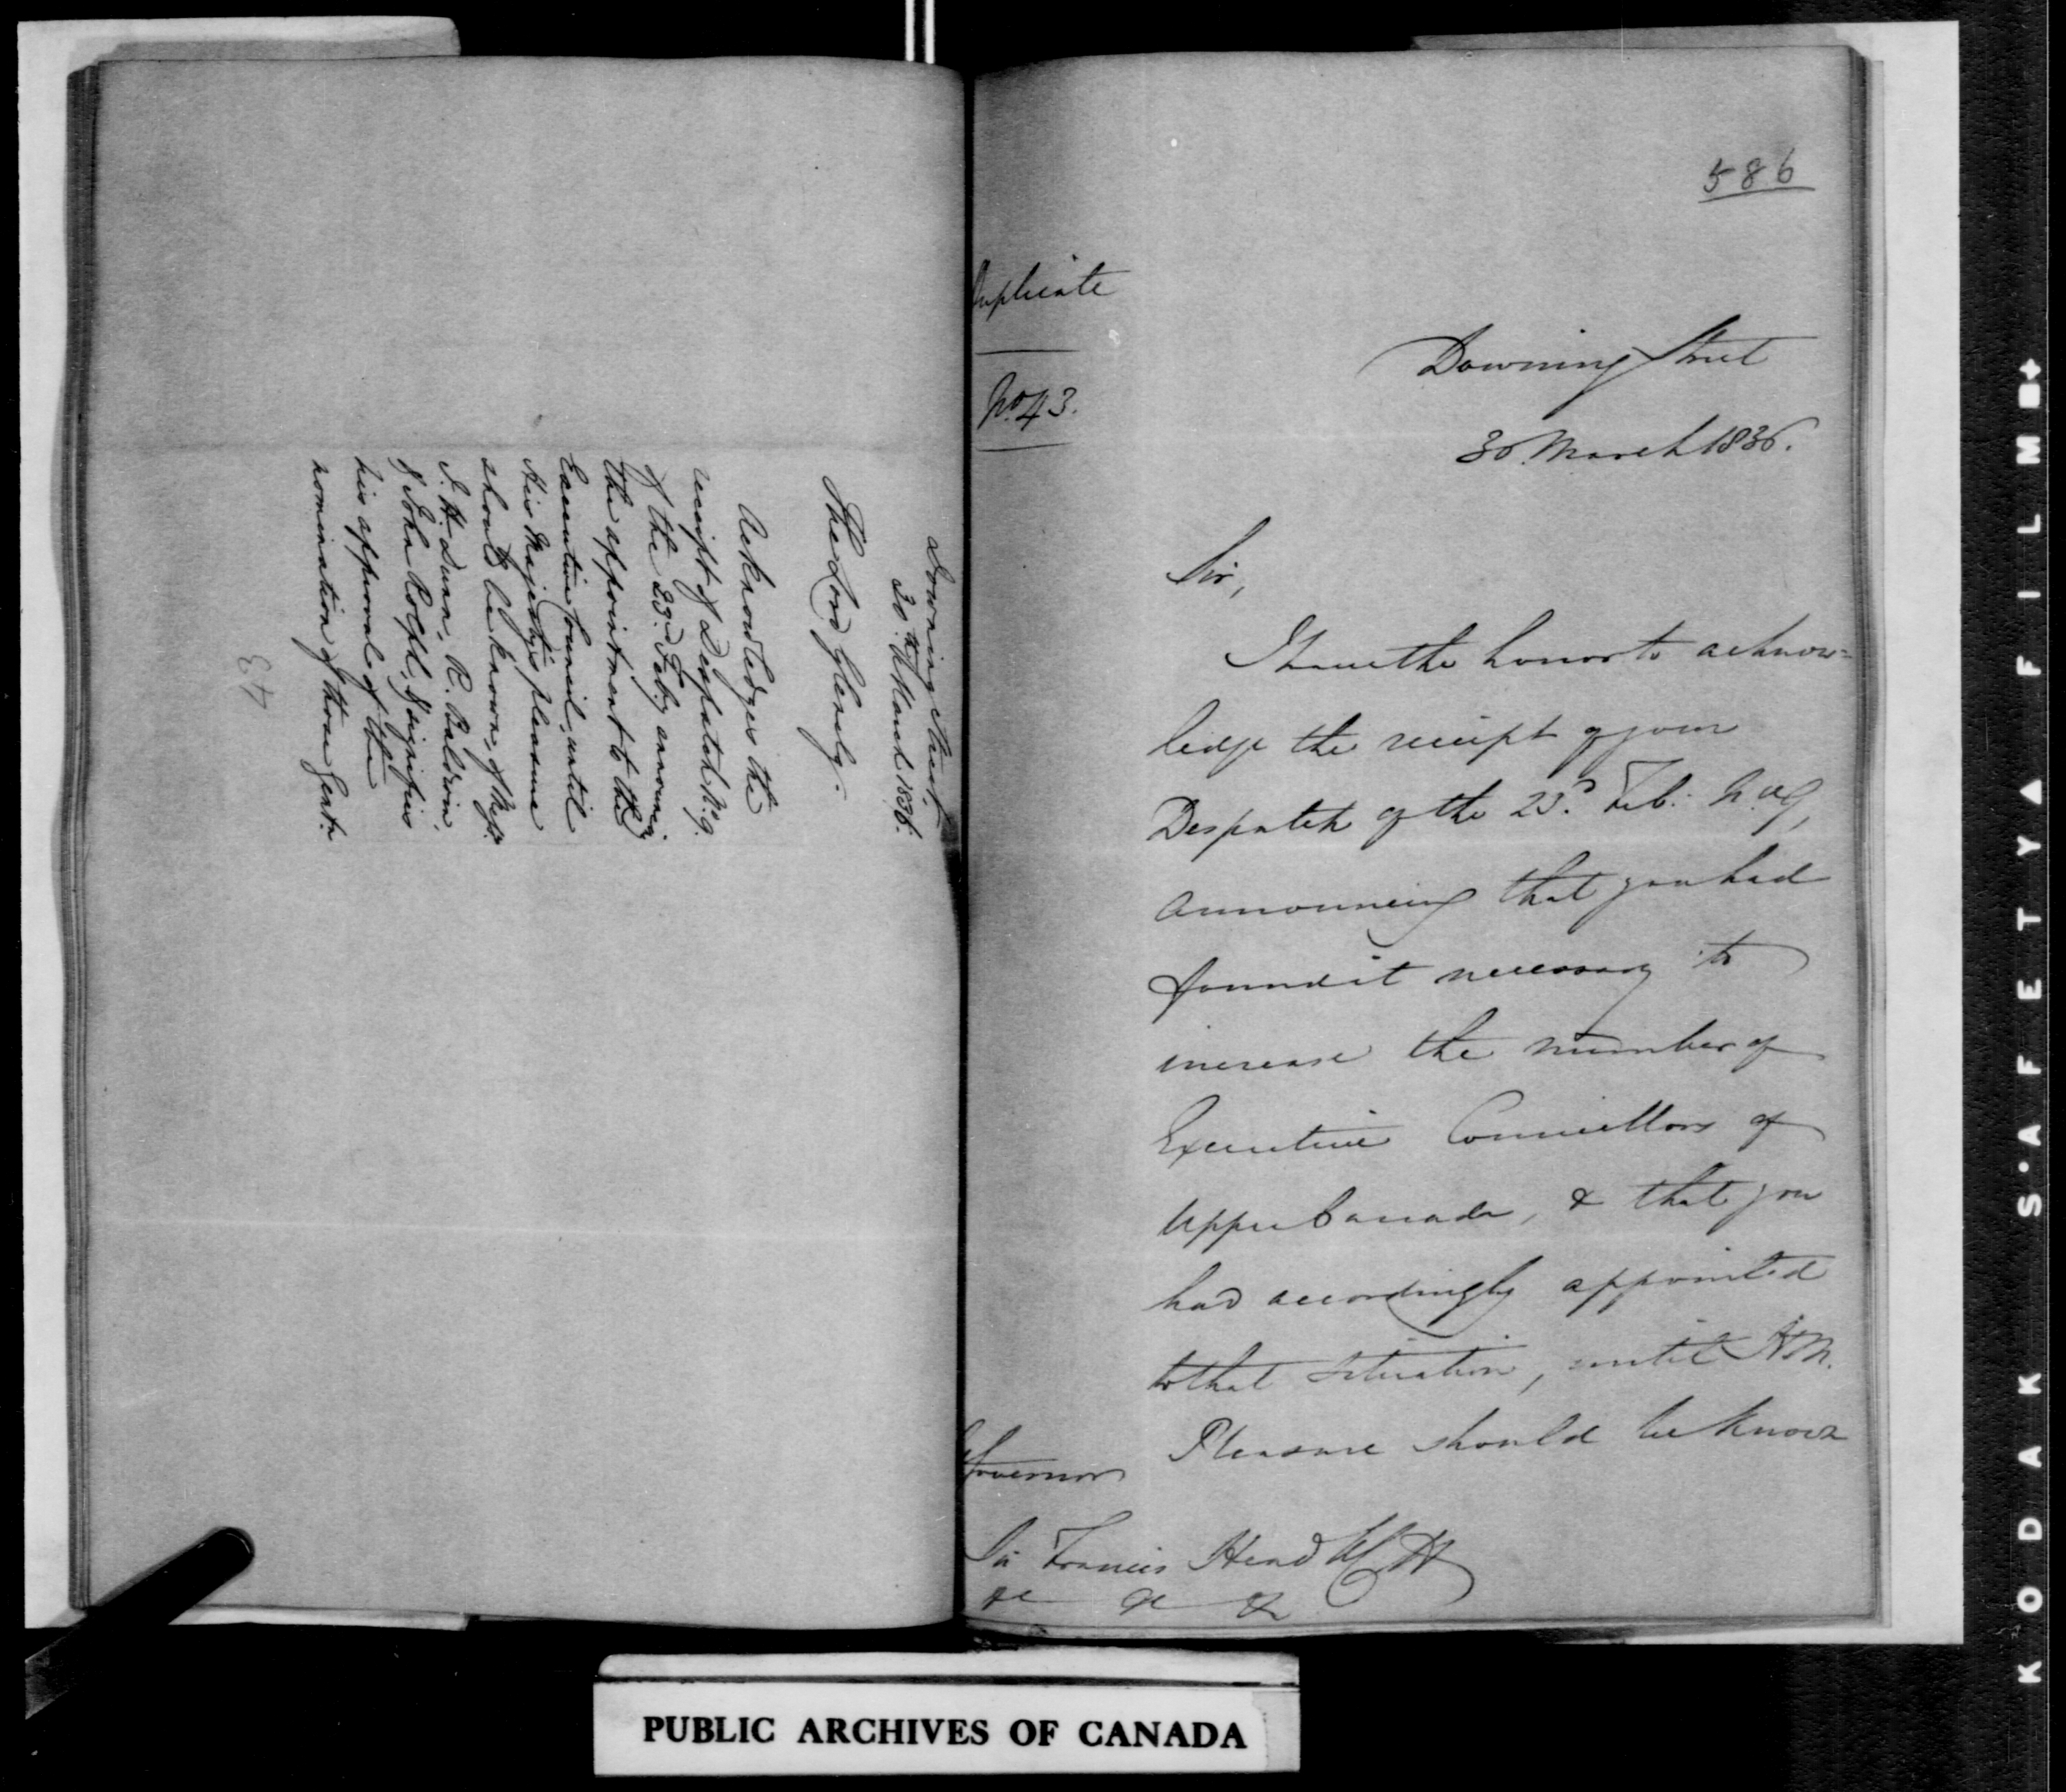 Downing Street
30th March 1836.
The Lord Glenelg.
Acknowledges the
receipt of Despatch No. 9.
of the 23d. Feby announcing
the appointment to the
Executive Council, until
His Majesty's pleasure
should be known, of Messrs.
J. H. Dunn, R. Baldwin,
& John Rolph, & signifies
his approval of the
nomination of those Gentn.
43
586
Duplicate
No. 43.
Downing Street
30. March 1836.
Sir,
I have the honor to acknow=
ledge the receipt of your
Despatch of the 23d. Feb. No. 9,
announcing that you had
found it necessary to
increase the number of
Executive Councillors of
Upper Canada, & that you
had accordingly appointed
to that situation, until H.M.
Pleasure should be known
Governor
Sir Francis Head KCH
&c &c &c
PUBLIC ARCHIVES OF CANADA
KODAK S·AFETY▲FILM